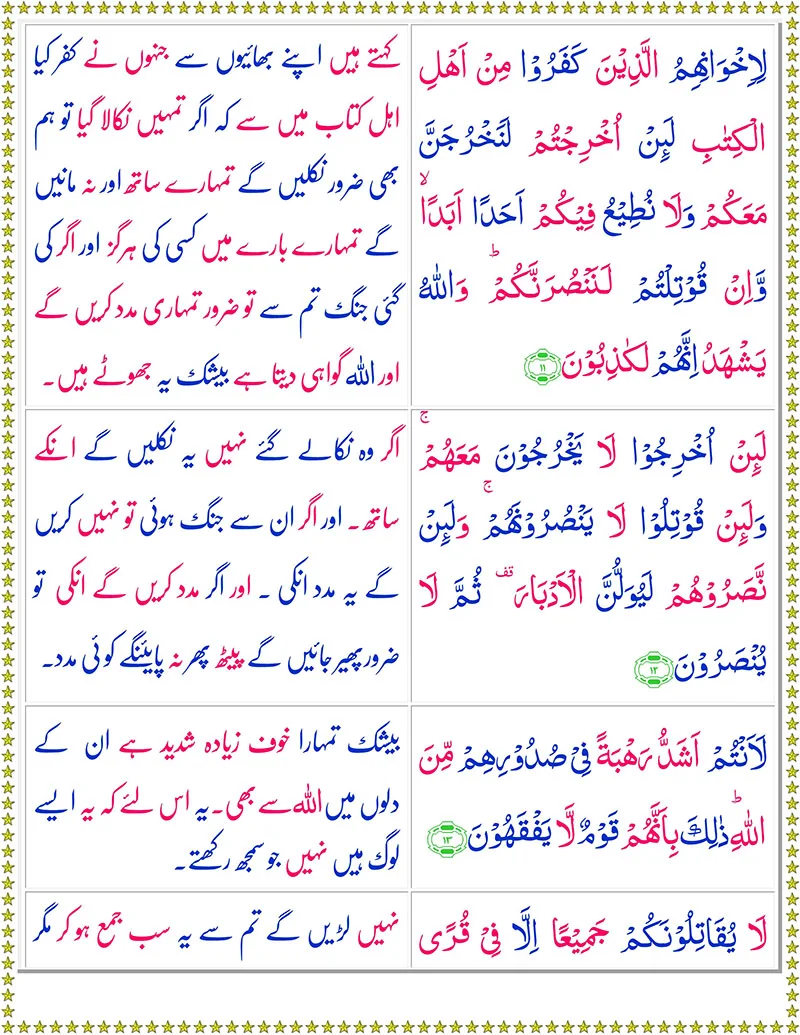 لِاِخْوَانِهِمُ الَّذِيْنَ كَفَرُوْا مِنْ اَهْلِ
الْكِتٰبِ لَئِنْ اُخْرِجْتُمْ لَنَخْرُجَنَّ
مَعَكُمْ وَلَا نُطِيْعُ فِيْكُمْ اَحَدًا اَبَدًا ۙ
وَّاِنْ قُوْتِلْتُمْ لَنَنْصُرَنَّكُمْ ؕ وَاللّٰهُ
يَشْهَدُ اِنَّهُمْ لَكٰذِبُوْنَ ۱۱
کہتے ہیں اپنے بھائیوں سے جنہوں نے کفر کیا
اہل کتاب میں سے کہ اگر تمہیں نکالا گیا تو ہم
بھی ضرور نکلیں گے تمہارے ساتھ اور نہ مانیں
گے تمہارے بارے میں کسی کی ہرگز اور اگر کی
گئی جنگ تم سے تو ضرور تمہاری مدد کریں گے
اور اللہ گواہی دیتا ہے بیشک یہ جھوٹے ہیں۔
لَئِنْ اُخْرِجُوْا لَا يَخْرُجُوْنَ مَعَهُمْ ۚ
وَلَئِنْ قُوْتِلُوْا لَا يَنْصُرُوْنَهُمْ ۚ وَلَئِنْ
نَّصَرُوْهُمْ لَيُوَلُّنَّ الْاَدْبَارَ قف ثُمَّ لَا
يُنْصَرُوْنَ ۱۲
اگر وہ نکالے گئے نہیں یہ نکلیں گے انکے
ساتھ۔ اور اگر ان سے جنگ ہوئی تو نہیں کریں
گے یہ مدد انکی ۔ اور اگر مدد کریں گے انکی تو
ضرور پھیر جائیں گے پیٹھ پھر نہ پایئنگے کوئی مدد۔
لَاَنْتُمْ اَشَدُّ رَهْبَةً فِيْ صُدُوْرِهِمْ مِّنَ
اللّٰهِ ؕ ذٰلِكَ بِاَنَّهُمْ قَوْمٌ لَّا يَفْقَهُوْنَ ۱۳
بیشک تمہارا خوف زیادہ شدید ہے ان کے
دلوں میں اللہ سے بھی۔ یہ اس لئے کہ یہ ایسے
لوگ ہیں نہیں جو سمجھ رکھتے۔
لَا يُقَاتِلُوْنَكُمْ جَمِيْعًا اِلَّا فِيْ قُرًى
نہیں لڑیں گے تم سے یہ سب جمع ہو کر مگر